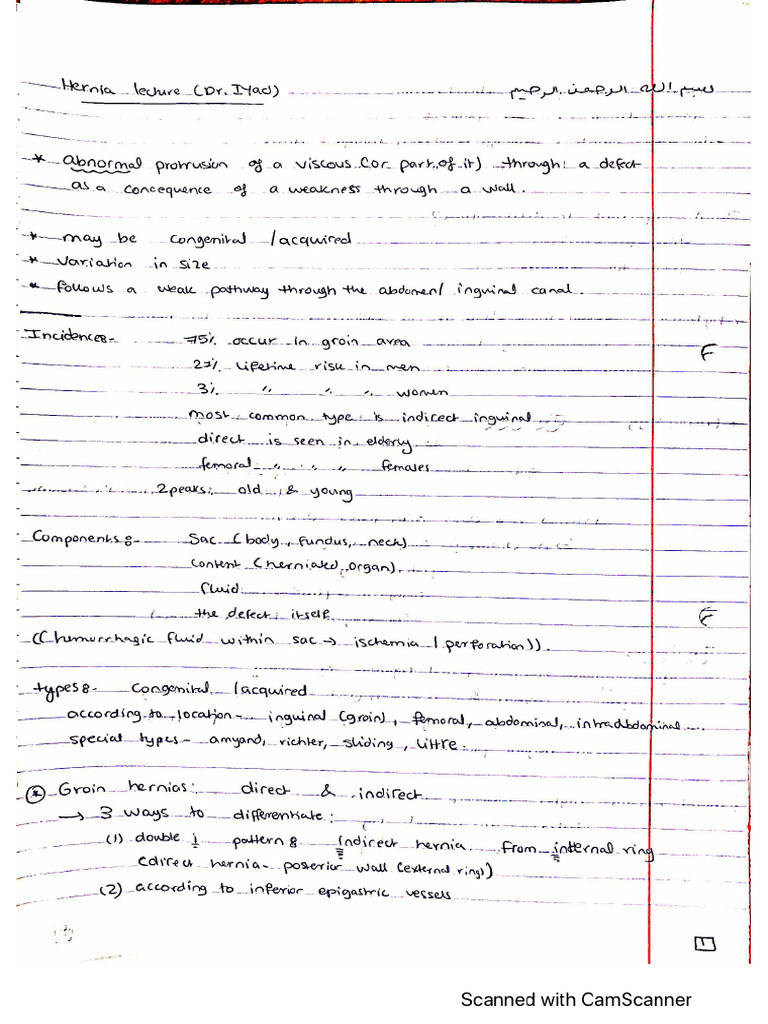 Hernia lecture (Dr. Iyad)
بسم الله الرحمن الرحيم
* abnormal protrusion of a viscous (or part of it) through a defect
as a concequence of a weakness through a wall.
* may be congenital / acquired
* variation in size
* follows a weak pathway through the abdomen / inguinal canal.
Incidence:- 75% occur in groin area
27% lifetime risk in men
3% " " " women
most common type is indirect inguinal
direct is seen in elderly
femoral " " " females
2 peaks: old & young
Components:- Sac (body, fundus, neck)
content (herniated organ)
fluid
the defect itself
((hemorrhagic fluid within sac → ischemia / perforation)).
types:- congenital / acquired
according to location- inguinal (groin), femoral, abdominal, intraabdominal
special types- amyand, richter, sliding, littre.
* Groin hernias: direct & indirect
→ 3 ways to differentiate:
(1) double i pattern: indirect hernia from internal ring
(direct hernia- posterior wall (external ring))
(2) according to inferior epigastric vessels
1
Scanned with CamScanner